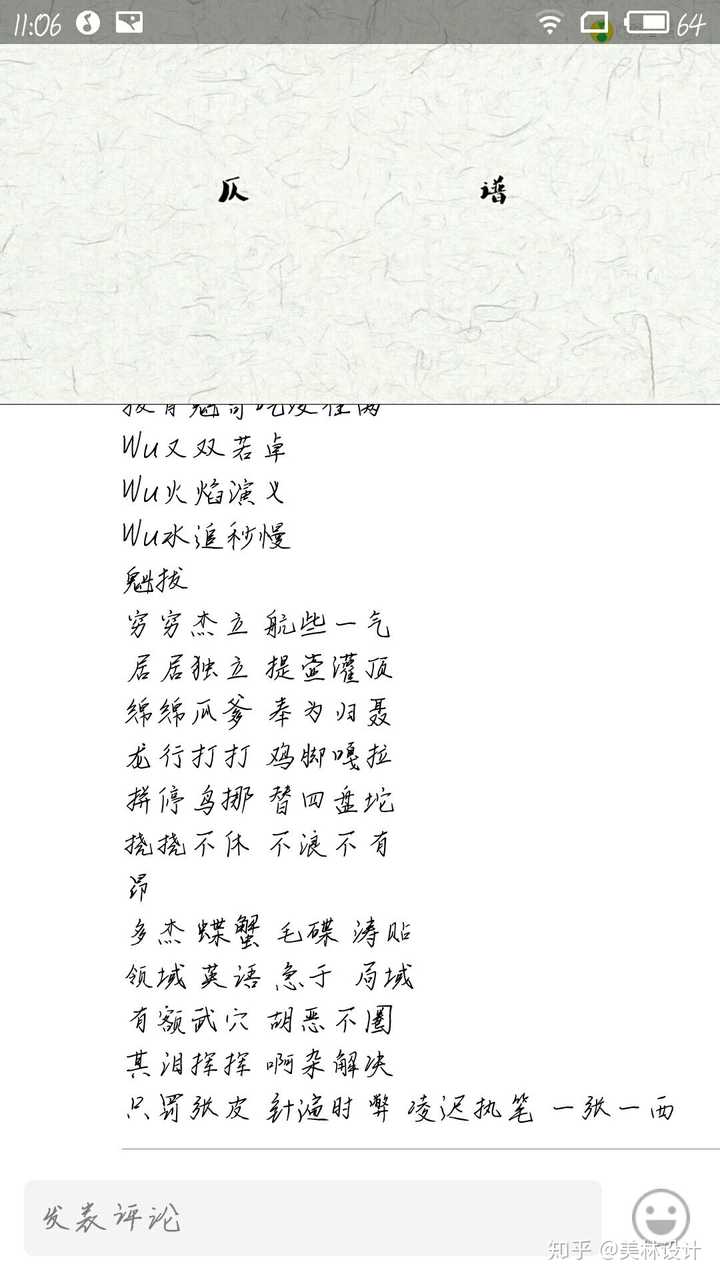 11:06 64
仄 谱
Wu又双若卓
Wu火焰演义
Wu水追秒慢
魁拔
穷穷杰立 航些一气
居居独立 提壶灌顶
绵绵瓜爹 奉为归聂
龙行打打 鸡脚嘎拉
拼停鸟挪 替四盘坨
挠挠不休 不浪不有
昂
多杰 蝶蟹 毛碟 涛贴
领域 英语 急于 局域
有额武穴 胡恶不圈
其泪挥挥 啊杂解决
只罚张友 针遍时弊 凌迟执笔 一张一西
发表评论
知乎 @美林设计